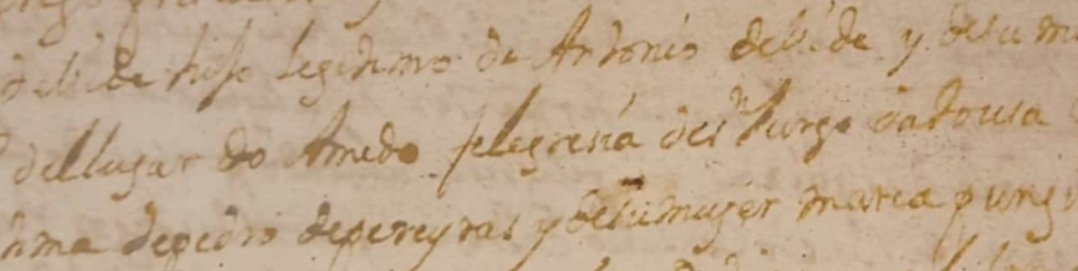 debide hijo legitimo de Antonio debide y de su m
del lugar do Amedo felegresia de sn Jurgo datousa
tima de pedro depereyras y de su mujer maria